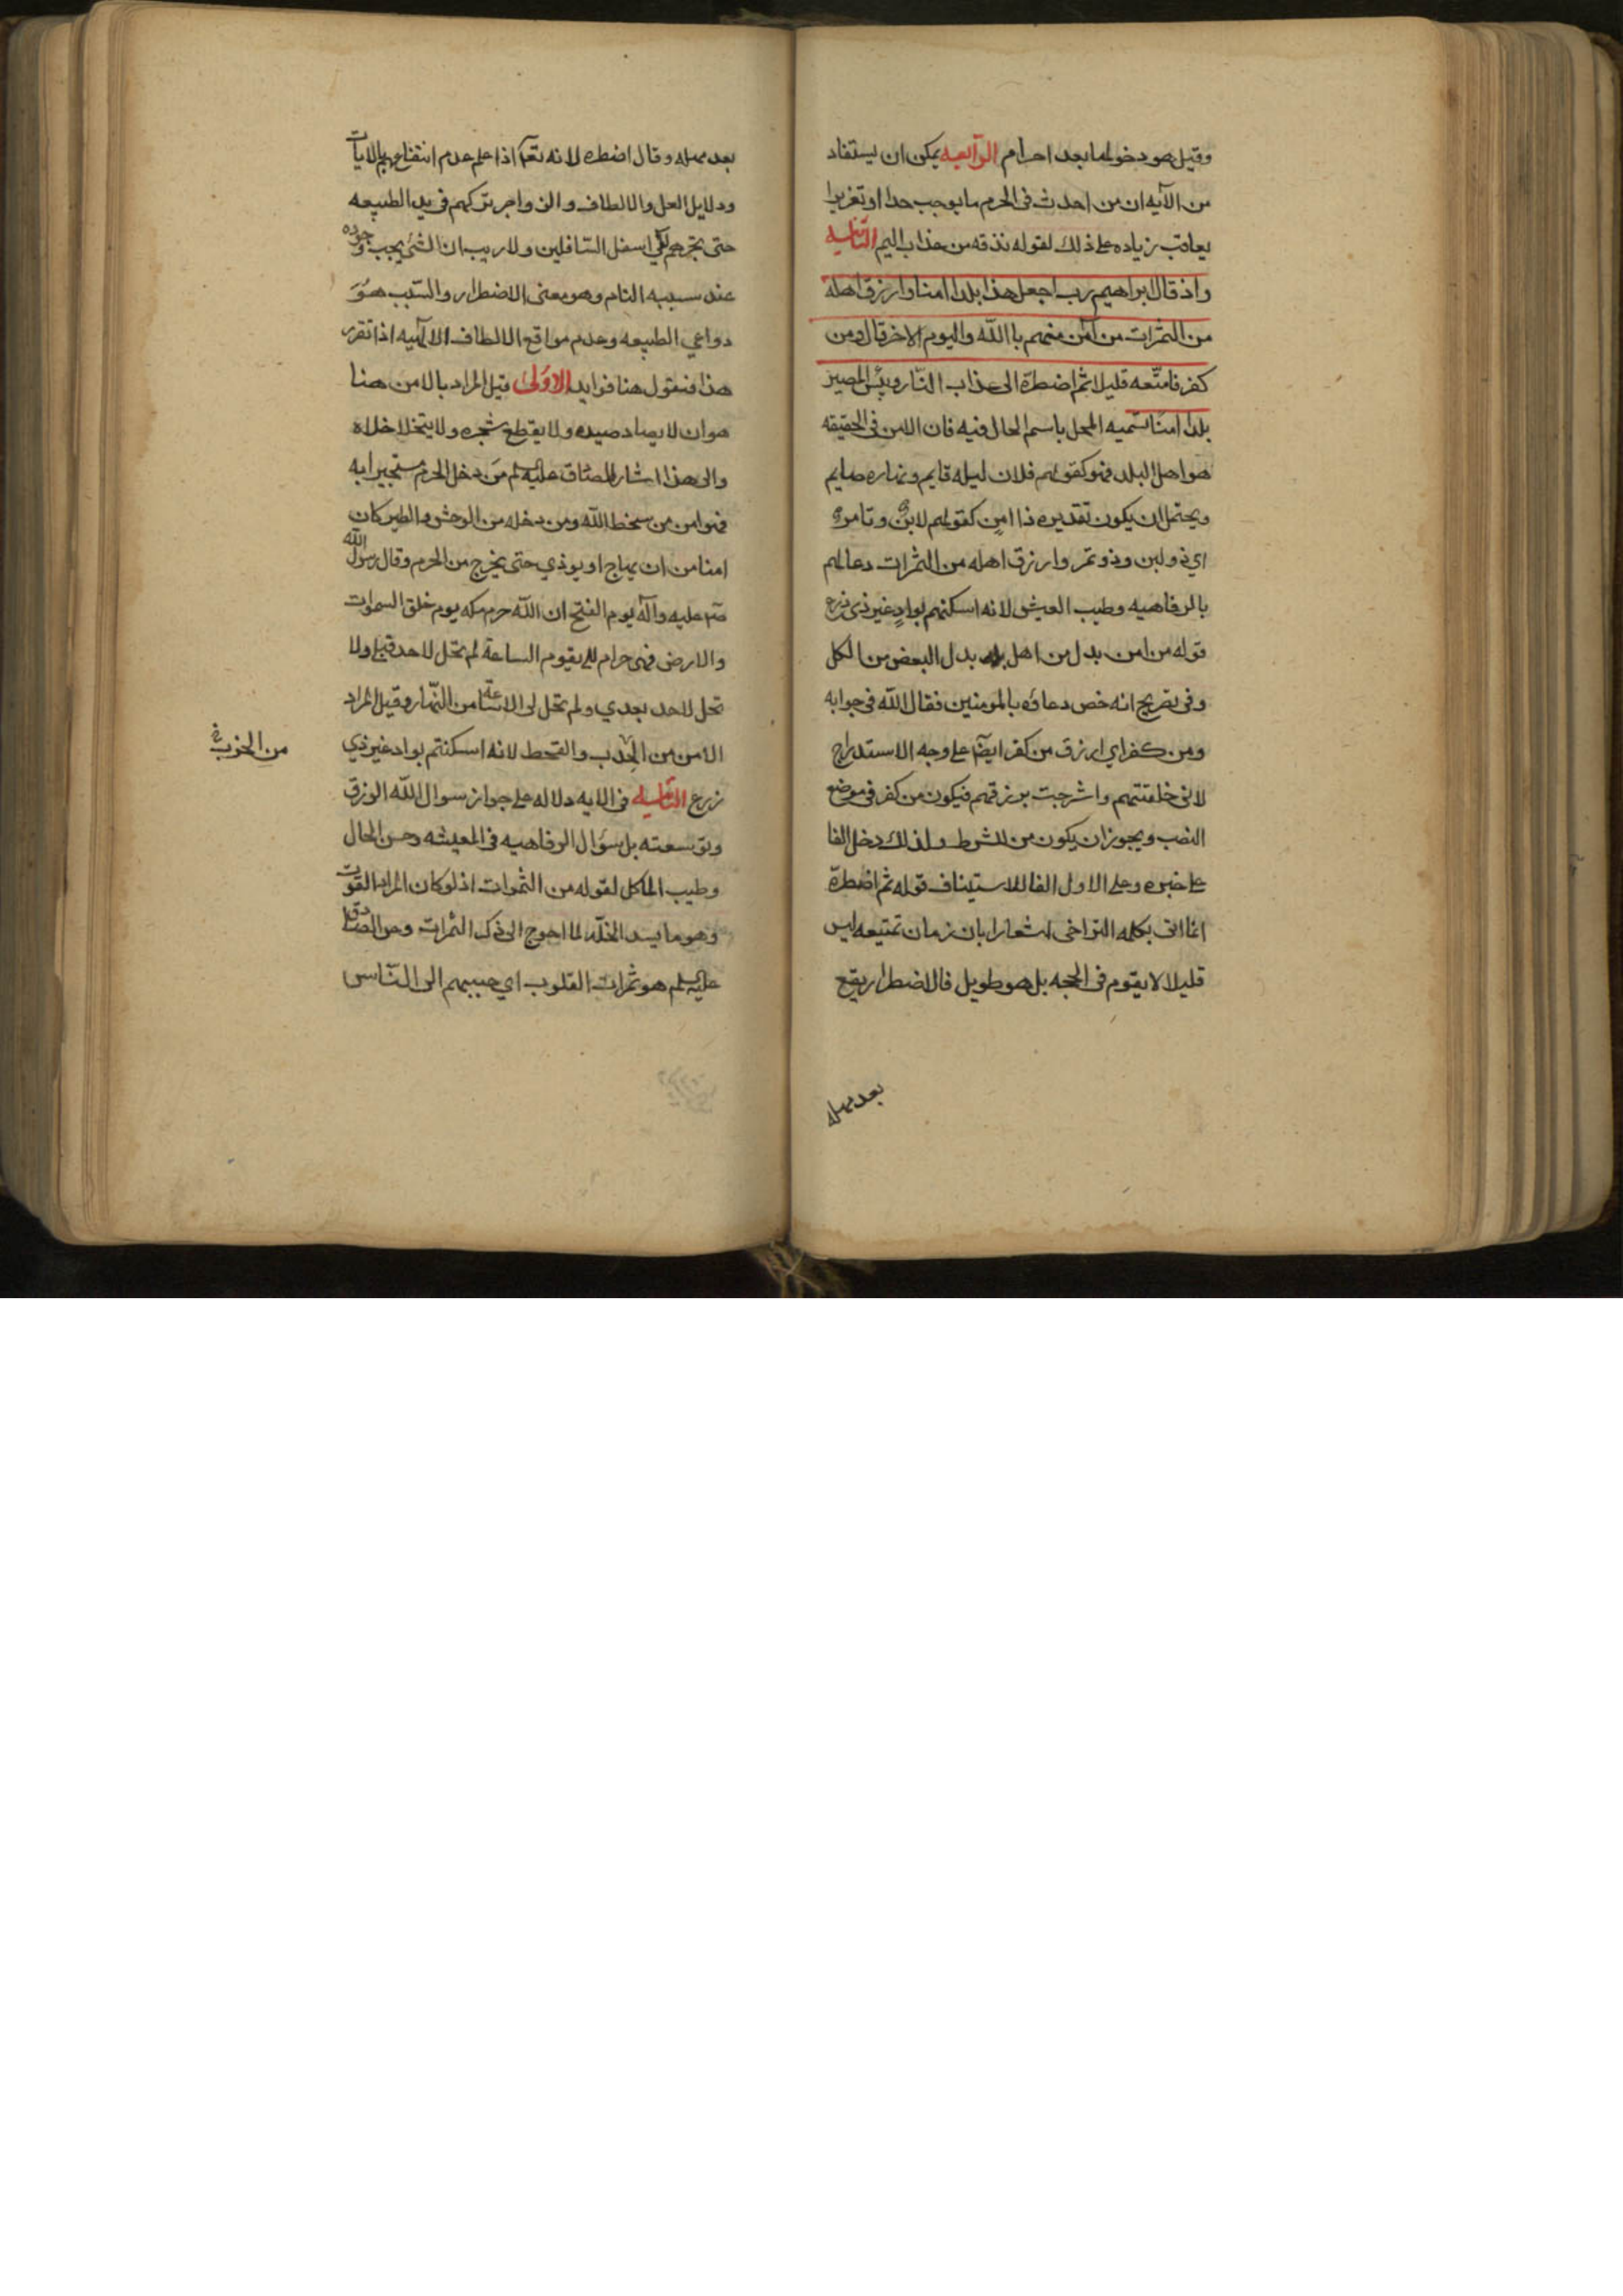 وقيل هو دخولها بعد احرام الرابعه يمكن ان يستفاد
من الآيه ان من احدث فى الحرم ما يوجب حدا او تعزيرا
يعاقب زياده على ذلك لقوله نذقه من عذاب اليم الثانيه
واذ قال ابراهيم رب اجعل هذا بلدا امنا وارزق اهله
من الثمرات من آمن منهم با الله واليوم الاخر قال ومن
كفر فامتّعه قليلا ثم اضطره الى عذاب النّار وبئس المصير
بلدا امنا تسميه المحل باسم الحال فيه فان الامن فى الحقيقه
هو اهل البلد فهو كقولهم فلان ليله قايم ونهاره صايم
ويحتمل ان يكون تقديره ذا امنٍ كقولهم لابن وتامر
اي ذو لبن وذو تمر وارزق اهله من الثمرات دعا لهم
بالرفاهيه وطيب العيش لانه اسكنهم بوادٍ غير ذى زرع
قوله من امن بدل من اهل بدل البعض من الكل
وفى تصريح انه خص دعاؤه بالمومنين فقال الله فى جوابه
ومن كفر اي ارزق من كفر ايضا على وجه الاستدراج
لانى خلقتهم والتزجت برزقهم فيكون من كفر فى موضع
النصب ويجوز ان يكون من للشرط ولذلك دخل الفا
على خبره وعلى الاول الفا للاستيناف قوله ثم اضطرّه
انما اتى بكلمه التراخى اشعارا بان زمان تمتيعه ليس
قليلا لا يقوم فى الحجه بل هو طويل فالاضطرار يقع
بعد مهله
بعد مهله وقال اضطره لانه تعالى اذا علم عدم انتفاعهم بالايات
ودلايل العقل والالطاف والزواجر تركهم فى يد الطبيعه
حتى تجرهم الى اسفل السّافلين ولا ريب ان الشئ يجب وجوده
عند سببه التام وهو معنى الاضطرار والسّبب هو
دواعي الطبيعه وعدم مواقع الالطاف الالهيه اذا تقرر
هذا فنقول هنا فوايد الاولى قيل المراد بالامن هنا
هو ان لا يصاد صيده ولا يقطع شجره ولا يختلا خلاه
والى هذا اشار الصادق عليه السلم من دخل الحرم مستجيرا به
فهو امن من سخط الله ومن دخله من الوحش والطير كان
امنا من ان يهاج او يوذي حتى يخرج من الحرم وقال رسول الله
صلى عليه وآله يوم الفتح ان الله حرم مكه يوم خلق السموات
والارض فهى حرام الى يقوم الساعة لم تحل لاحد قبلي ولا
تحل لاحد بعدي ولم تحل لى الا ساعة من النّهار وقيل المراد
الامن من الجدب والقحط لانه اسكنتم بواد غير ذي
من الخرب
زرع الثانيه فى الايه دلاله على جواز سوال الله الرزق
وتوسعته بل سؤال الرفاهيه فى المعيشه وحسن الحال
وطيب الماكل لقوله من الثمرات اذ لو كان المراد القوت
وهو ما يسد الخلّه لما احوج الى ذكر الثمرات وعن الصادق
عليه السلم هو ثمرات القلوب اي حببهم الى النّاس